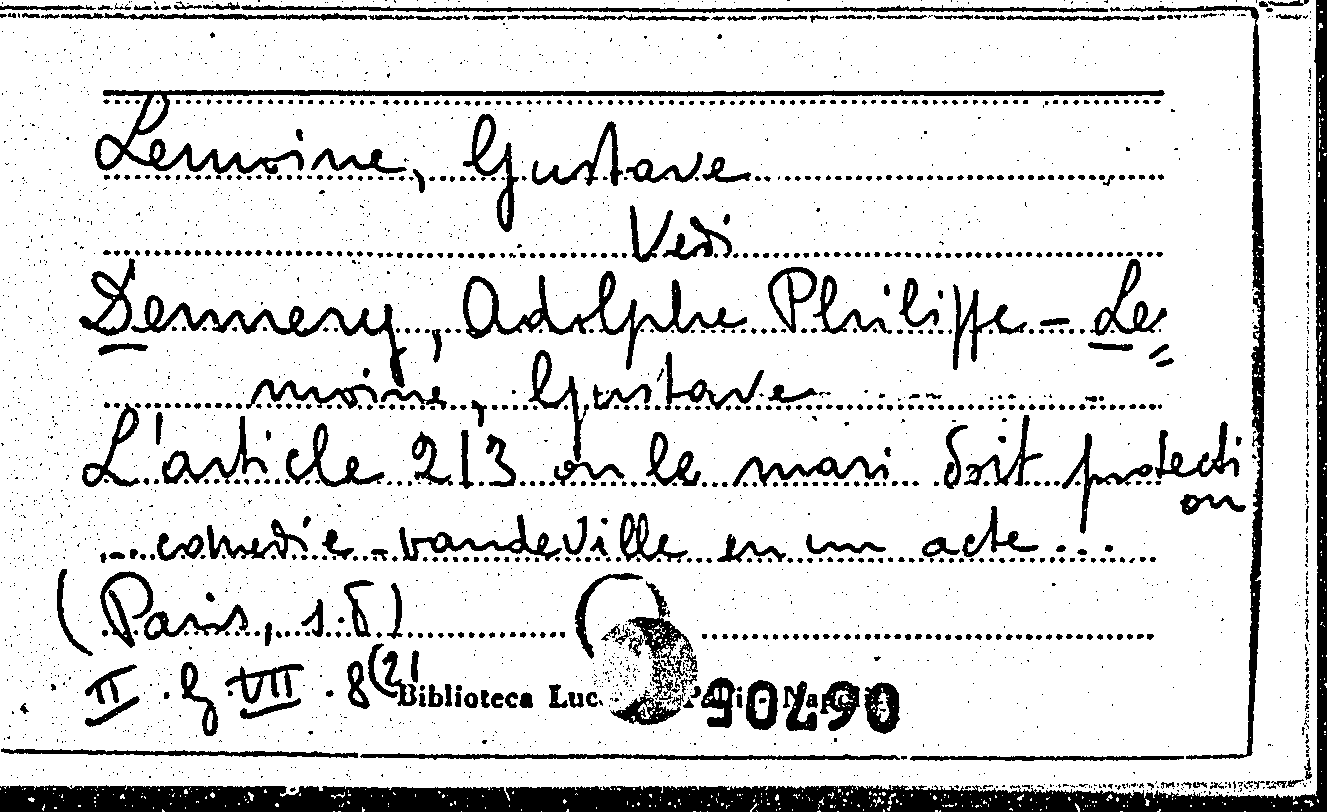 Lemoine, Gustave
Vedi
Dennery, Adolphe Philippe - Le
moine, Gustave
L'article 213 ou le mari doit protecti
on
... comedie - vaudeville en un acte...
(Paris, s.d)
II. G. VII. 8(2
Biblioteca Luc